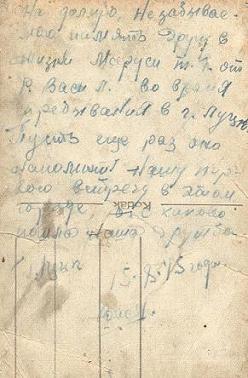 На долгую, незабывае-
мую память другу в
жизни Маруси т. г. от
Р. Васи л. во время
пребывания в г. Луцк
Пусть еще раз это
напомнит нашу пер-
вую встречу в этом
городе, с какого
пошла наша дружба
KODAK
г. Луцк
15. года.